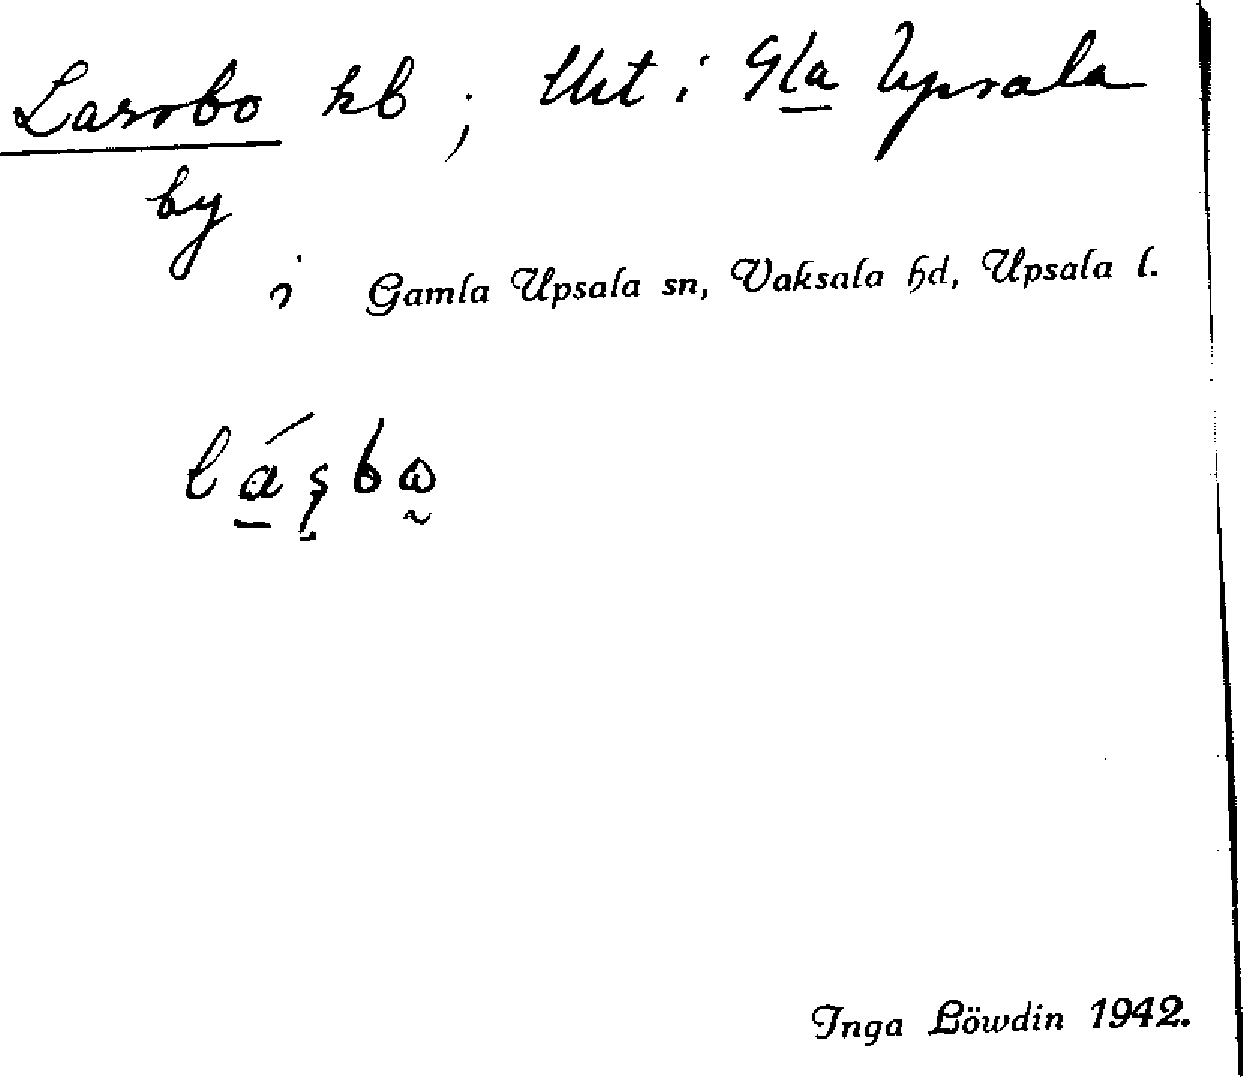 Larsbo hb ; Utt i Gla Upsala
by
i Gamla Upsala sn, Vaksala hd, Upsala l.
Inga Löwdin 1942.